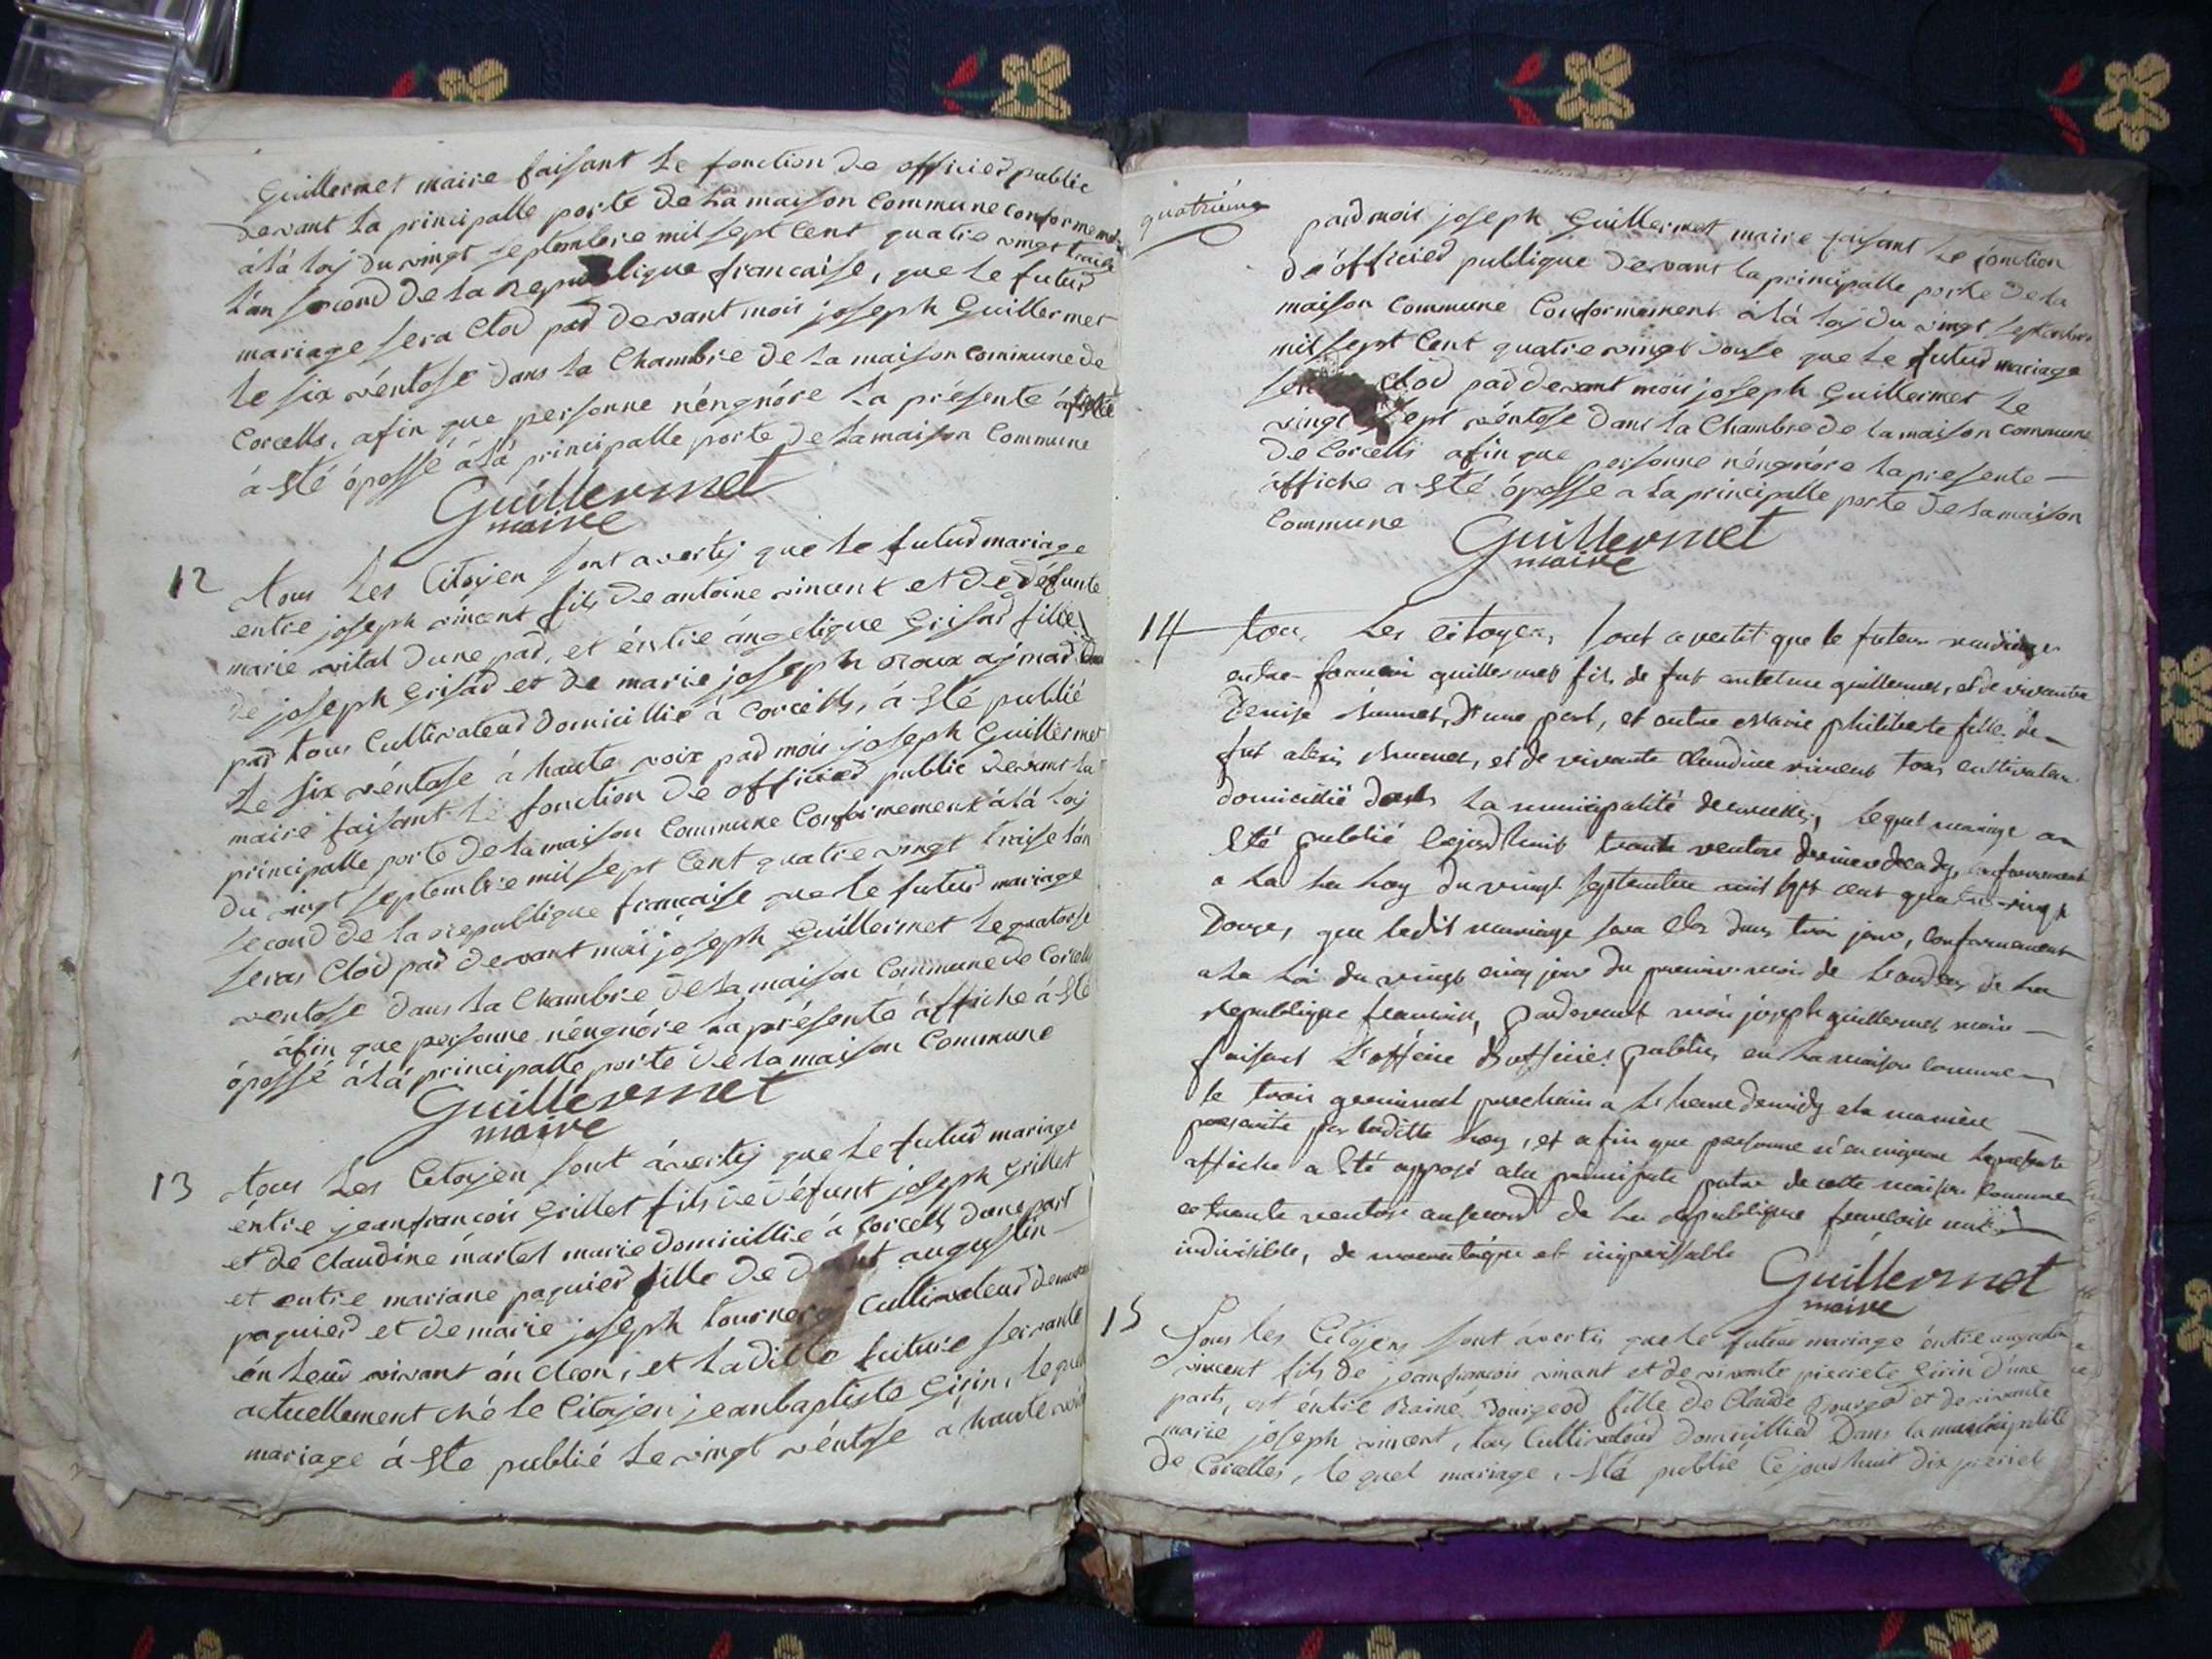 Guillermet maire faisant le fonction de officier public
devant la principalle porte de la maison Commune conformement
à là loj du vingt septembre mil sept Cent quatre vingt traise
l'an second de la republique francaise, que le futur
mariage sera Clod pad devant moii joseph Guillermet
le six véntose dans la Chambre de la maison commune de
Corcells, afin que personne néngnóre la présente áffiche
à Été ópossé à là principalle porte de la maison Commune
Guillermet
maire
12 tous les Citojen sont avertij que le futud mariage
entre joseph vincent fils de antoine vincent et de défunte
marie vital dune pad, et éntre ángelique Grisad fille
de joseph Grisad et de marie joseph Roux ajmad
pad tous Cultivateud domicillié à Corcells, à Été publié
Le six véntose à haute voix pad moii joseph Guillermet
maire faisant le fonction de officied public devant la
principalle porte de la maison Commune Conformement à là loj
du vingt septembre mil sept Cent quatre vingt traise l'an
second de la republique francaise que le futud mariage
seras Clod pad devant moii joseph Guillermet le quatorse
ventose dans la Chambre de la maison Commune de Corcells
áfin que personne néngnóre la présente áffiche á Été
ópossé à là principalle porte de la maison Commune
Guillermet
maire
13 tous Les Citojen sont ávertij que Le futud mariage
éntre jeanfrancois Grillet fils de défunt joseph Grillet
et de Claudine martel marie domicillié à Corcells dune part
et entre mariane paquied fille de augustin
paquied et de marie joseph Cultivateud
én leur vivant án Cleon, et Laditte future servante
actuellement ché le Citojen jeanbaptiste Girin, lequel
mariage á Été publié Le vingt véntose à haute voix
quatriéme
pad moii joseph Guillermet maire faisant le fonction
de officied publique devant la principalle porte de la
maison Commune Conformement à là loj du vingt septembre
mil sept Cent quatre vingt douse que le futud mariage
Clod pad devant moii joseph Guillermet le
vingt sept véntose dans la Chambre de la maison commune
de Corcells afin que personne néngnóre la presente
áffiche a Été óposse a la principalle porte de la maison
Commune
Guillermet
maire
14 tous Les citoyens sont avertit que le futeur mariage
entre francoi guillermet fils de fut guillermet, et de vivante
Denise d'une part, et entre philiberte fille de
fut alexis et de vivante Claudine vincent tous cultivateur
domicillié dans La municipalité de corcelles, Lequel mariage a
Eté publié trente ventose conformement
a La Loy du vingt septembre mil sept cent quatre vingt
Douze, que ledit mariage sera Clos dans troi jour, Conformement
a La Loi du vingt cinq jour du premier moi de La de La
republique francoise, pardevant moi joseph guillermet maire
faisant L'office D'officier public, en La maison Commune
le troi germinal prochain a Le heure de midy et la maniere
prescrite par laditte Loy, et afin que personne n'en ignore La presente
affiche a Eté apposé a la principale porte de cette maison Commune
ce trente ventose an second de La republique francoise une
indivisible, et imperissable
Guillermet
maire
15 Tous les Citojens sont avertis que le futeur mariage éntre augustin
vincent fils de jeanfrancois vincent et de vivante pierrete Girin d'une
parts, et éntre Raine fille de Claude et de vivante
marie joseph vincent, tous Cultivateud domicillied Dans la municipalité
de Corcelles, le quel mariage, Été publié Ce jourd huit dix